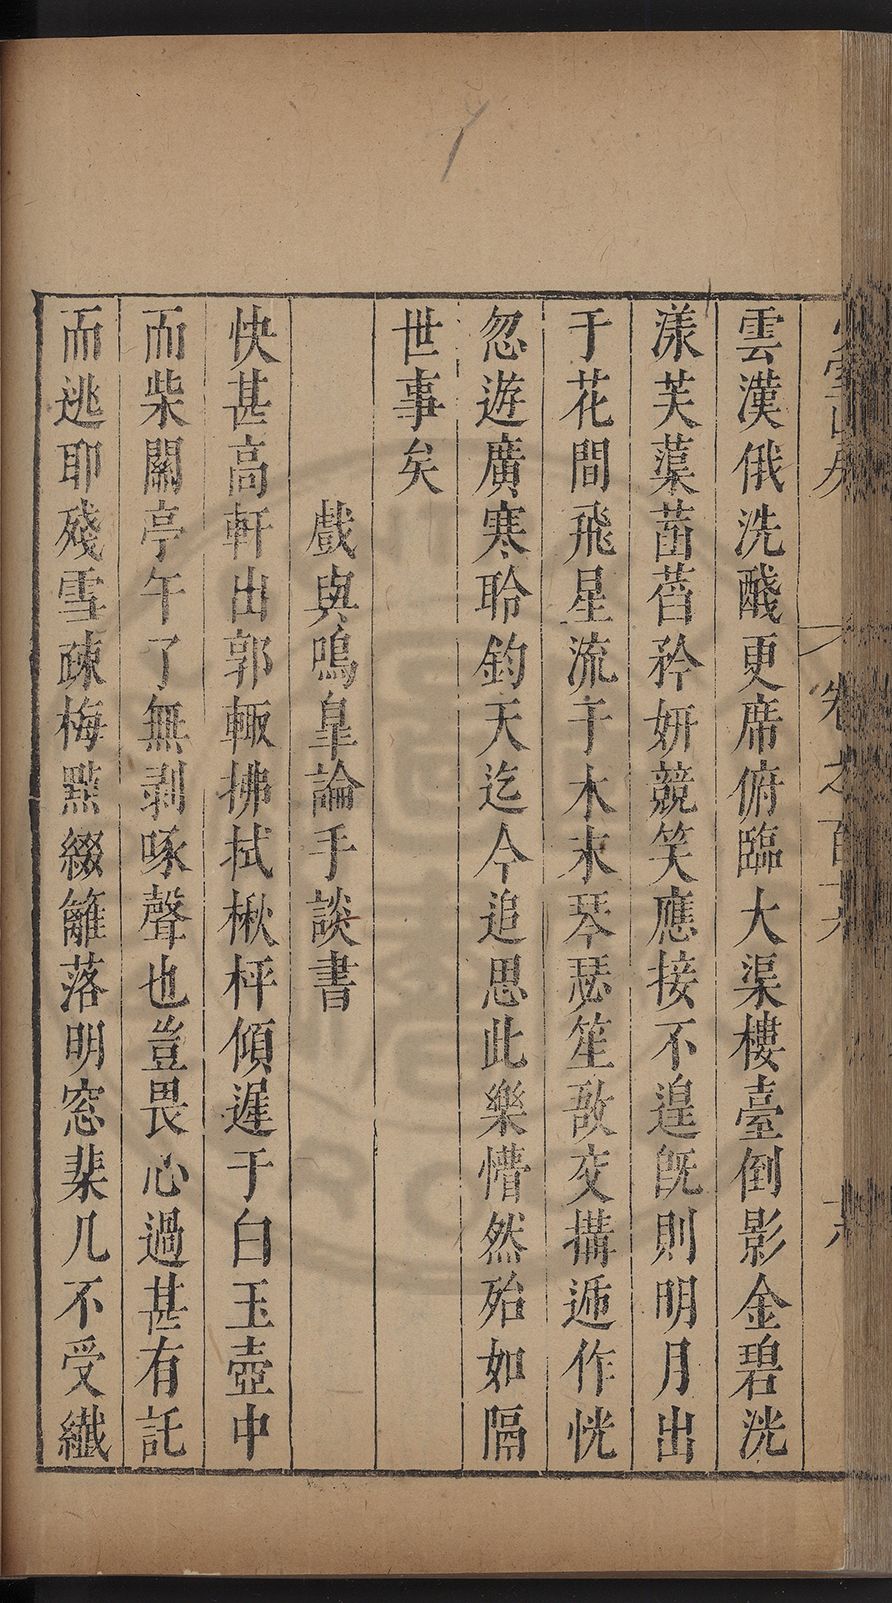 卷之百十六
雲漢俄洗醆更席俯臨大渠樓臺倒影金碧洸
漾芙蕖菡萏矜妍競笑應接不遑旣則明月出
于花間飛星流于木末琴瑟笙敔交搆遞作恍
忽遊廣寒聆鈞天迄今追思此樂懵然殆如隔
世事矣
戲與鳴皐論手談書
快甚高軒出郭輙拂拭楸枰傾遲于白玉壺中
而柴關亭午了無剥啄聲也豈畏心過甚有託
而逃耶殘雪疎梅點綴籬落明窓棐几不受纎